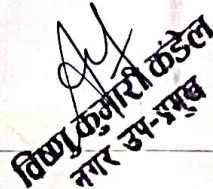 विष्णु कुमारी कंडेल
नगर उप-प्रमुख